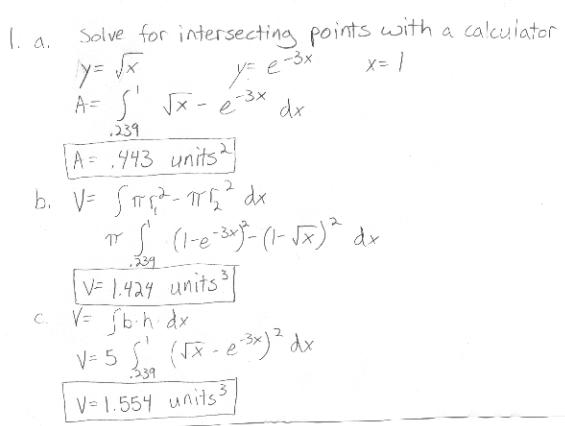 1. a. Solve for intersecting points with a calculator
y= √x y= e^-3x x= 1
A= ∫_.239^1 √x - e^-3x dx
A= .443 units²
b. V= ∫ πr₁² - πr₂² dx
π ∫_.239^1 (1-e^-3x)² - (1-√x)² dx
V= 1.424 units³
c. V= ∫b·h dx
V= 5 ∫_.239^1 (√x - e^-3x)² dx
V= 1.554 units³